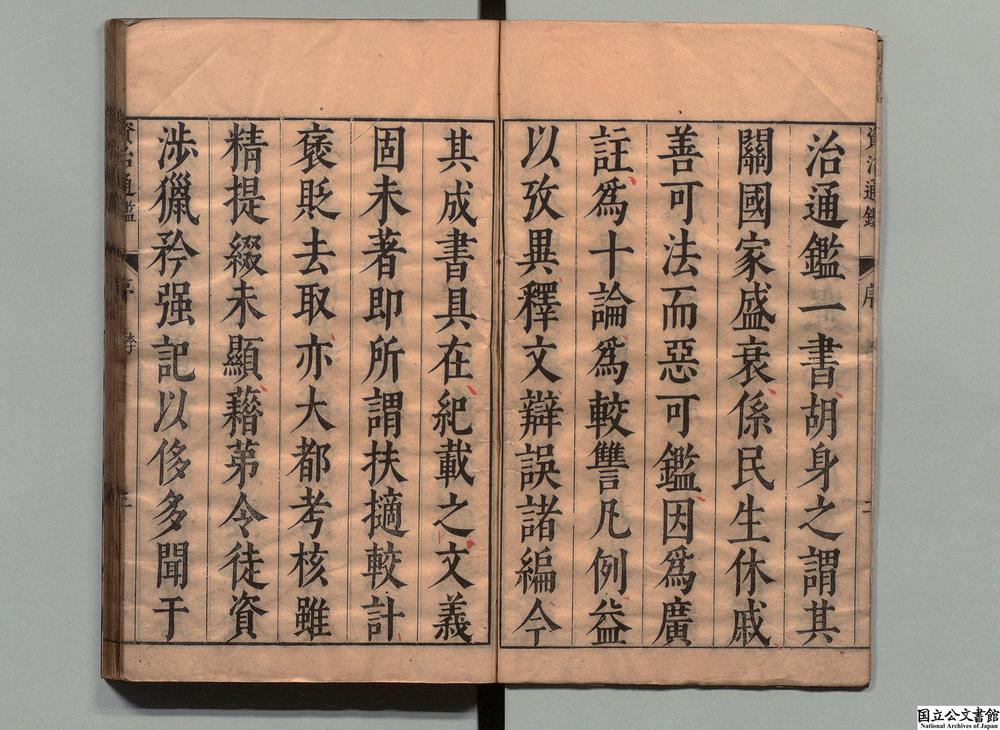 治通鑑一書胡身之謂其
關國家盛衰係民生休戚
善可法而惡可鑑因爲廣
註爲十論爲較讐凡例益
以攷異釋文辯誤諸編今
其成書具在紀載之文義
固未著即所謂扶擿較計
褒貶去取亦大都考核雖
精提綴未顯藉第令徒資
涉獵矜强記以侈多聞于
資治通鑑
序
資治通鑑
序
国立公文書館
National Archives of Japan